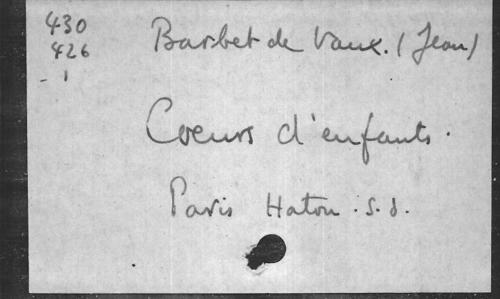 430
426
- 1
Barbet de Vaux. (Jean)
Coeurs d'enfants.
Paris Haton. s.d.